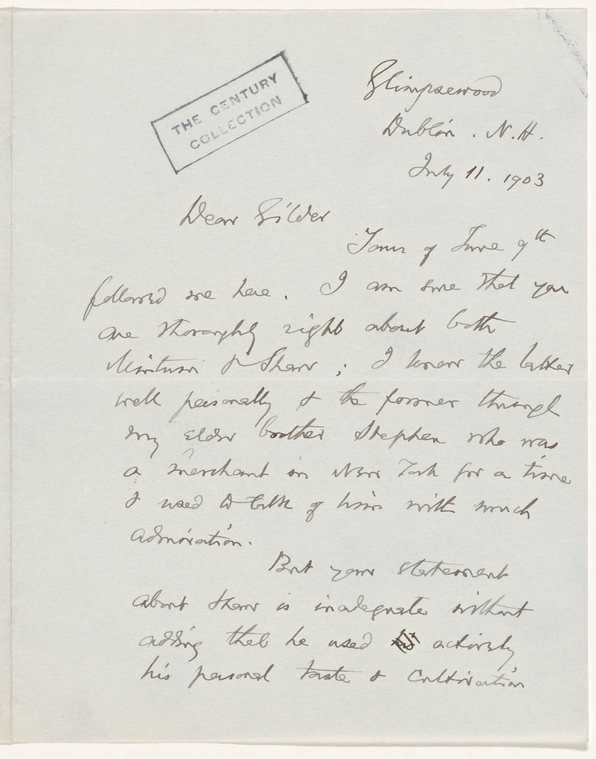 THE CENTURY
COLLECTION
Glimpsewood
Dublin. N.H.
July 11. 1903
Dear Gilder
Yours of June 9th
followed me here. I am sure that you
are thoroughly right about both
Minturn & Shaw; I knew the latter
well personally & the former through
my elder brother Stephen who was
a merchant in New York for a time
& used to talk of him with much
admiration.
But your statement
about Shaw is inadequate without
adding that he used actively
his personal taste & cultivation